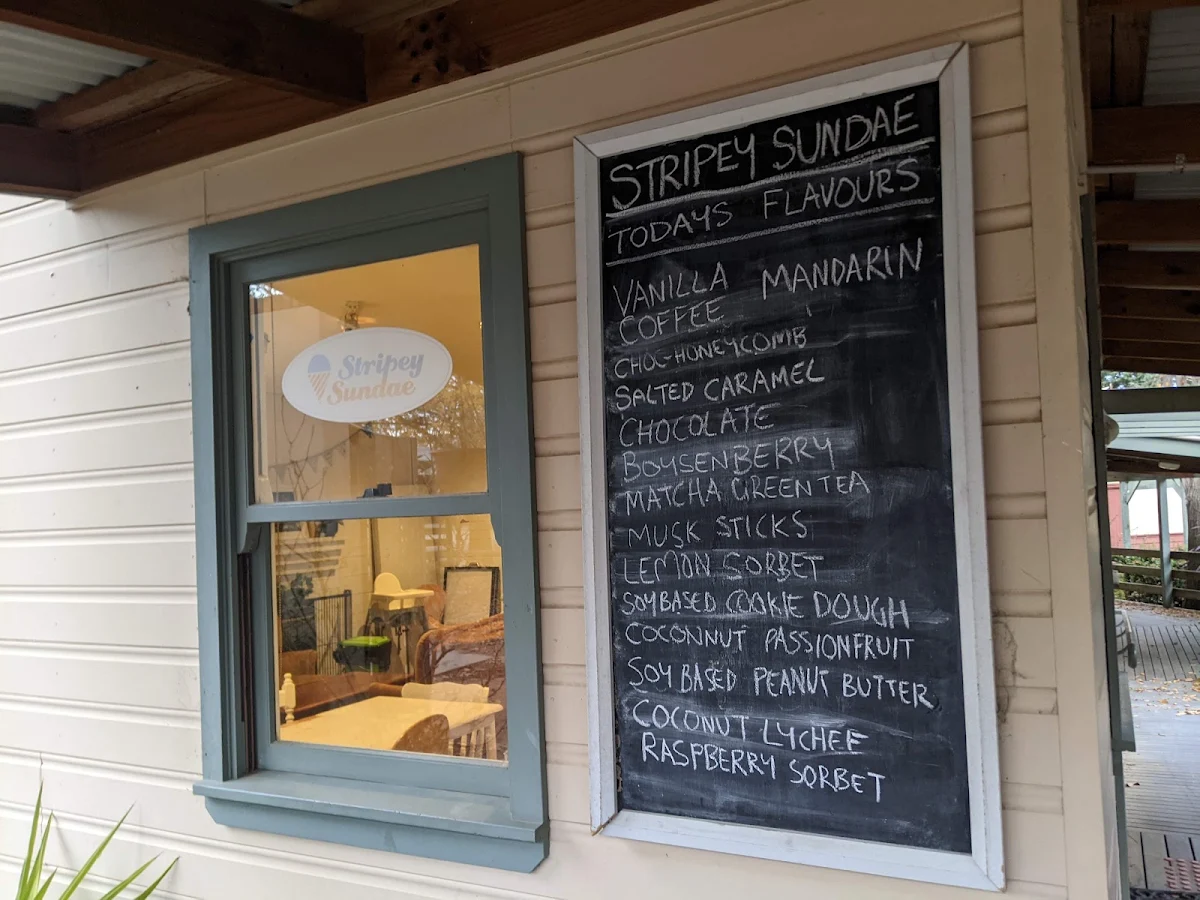 Stripey
Sundae
STRIPEY SUNDAE
TODAYS FLAVOURS
VANILLA MANDARIN
COFFEE
CHOC-HONEYCOMB
SALTED CARAMEL
CHOCOLATE
BOYSENBERRY
MATCHA GREEN TEA
MUSK STICKS
LEMON SORBET
SOYBASED COOKIE DOUGH
COCONNUT PASSIONFRUIT
SOY BASED PEANUT BUTTER
COCONUT LYCHEE
RASPBERRY SORBET